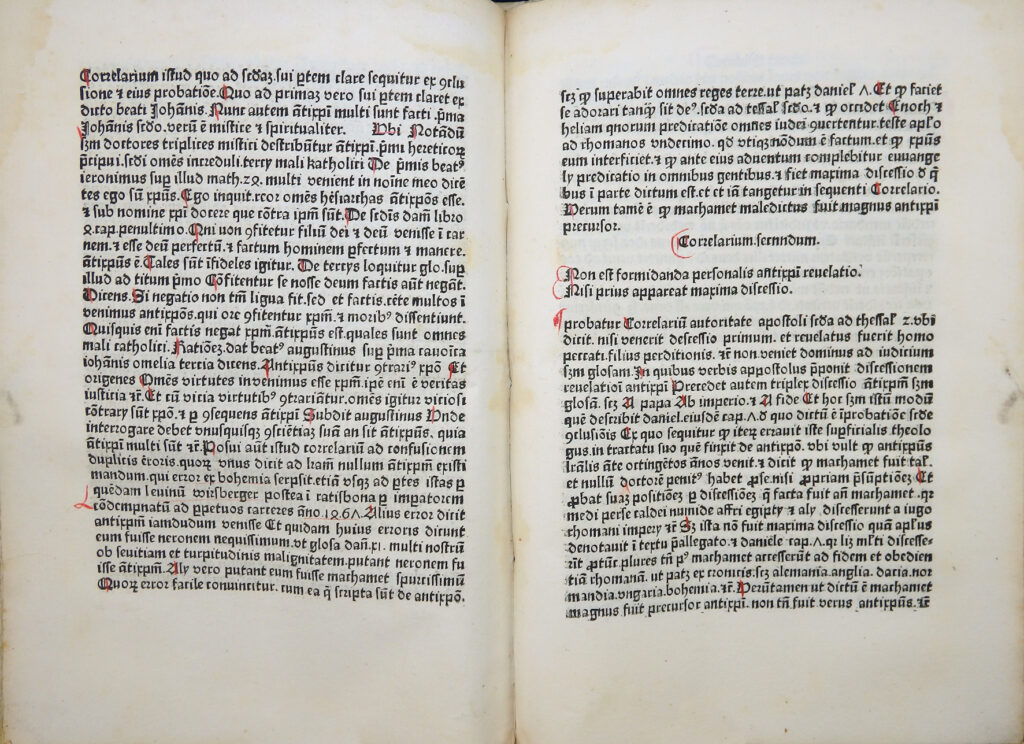 Correlarium istud quo ad scḋaʒ.sui ꝑtem clare sequitur ex ꝯclu
sione ⁊ eius probatiōe.Quo ad primaʒ vero sui ꝑtem claret ex
dicto beati Johānis.Nunc autem ātixpī multi sunt facti.p̄ma
Johānis scḋo.verū ē mistice ⁊ spiritualiter. Ubi Notādū
scḋm doctores triplices mistici describūtur ātixpī.p̄mi hereticoꝝ
p̄ncipui.scḋi omēs increduli.tercy mali katholici De p̄mis beatꝰ
ieronimus suꝑ illud math.24. multi venient in noīne meo dicē
tes ego sū xp̄us.Ego inquit.reor omēs hēsiarchas ātixp̄os esse.
⁊ sub nomine xp̄i docere que cōtra ip̄m sūt.De scḋis dam̄ libro
4.cap.penultimo.Qui non ꝯfitetur filiū dei ⁊ deū venisse ī car
nem.⁊ esse deū perfectū.⁊ factum hominem ꝑfectum ⁊ manere.
ātixpūs ē.Tales sūt īfideles igitur. De tercys loquitur glo.suꝑ
illud ad titum pmo Cōfitentur se nosse deum factis aūt negāt.
Dicens.Si negatio non tm̄ ligua fit.sed et factis.cēte multos ī
venimus antixp̄os.qui ore ꝯfitentur xp̄m.⁊ moribꝰ dissentiunt.
Quisquis eni factis negat xp̄m ātixpūs est.quales sunt omnes
mali catholici.Ratioēʒ.dat beatꝰ augustinus suꝑ p̄ma canoīca
iohānis omelia tercia dicens.Antixpūs dicitur ꝯtrariꝰ xp̄o Et
origenes Omēs virtutes invenimus esse xp̄m.ipē eni ē veritas
iusticia ⁊c.Et cū vicia virtutibꝰ ꝯtrariātur.omēs igitur viciosi
cōtrary sūt xp̄o.⁊ ꝑ ꝯsequens ātixpī Subdit augustinus Unde
interrogare debet vnusquisqꝫ ꝯscētiaʒ suā an sit ātixpūs. quia
ātixpī multi sūt ⁊c.Posui aūt istud correlariū ad confusionem
duplicis ēroris.quoꝝ vnus dicit ad lr̄am nullum ātixpm existi
mandum.qui error ex bohemia serpsit.etiā vsqꝫ ad ꝑtes istas ꝑ
quēdam leuinū wirsberger postea ī ratisbona ꝑ imꝑatorem
cōdempnatū ad ꝑpetuos carceres āno.1467.Alius error dicit
antixpm iamdudum venisse Et quidam huius erroris dicunt
eum fuisse neronem nequissimum.vt glosa dan̄.xi. multi nostrū
ob seuitiam et turpitudinis malignitatem.putant neronem fu
isse ātixpm.Aly vero putant eum fuisse machamet spurcissimū
Quoꝝ error facile convincitur.cum ea q̄ scripta sūt de antixpo.
scꝫ ꝙ superabit omnes reges terre.ut patꝫ daniel 7. Et ꝙ faciet
se adorari tanqꝫ sit deꝰ.scḋa ad tessaƚ scḋo.⁊ ꝙ occidet Enoch ⁊
heliam quorum predicatiōe omnes iudei ꝯuertentur.teste apl̄o
ad rhomanos vndecimo.qḋ vtiqꝫ nōdum ē factum.et ꝙ xp̄us
eum interficiet.⁊ ꝙ ante eius aduentum complebitur euuange
ly predicatio in omnibus gentibus.⁊ fiet maxima discessio ḋ q̄
bus ī parte dictum est.et et iā tangetur in sequenti Correlario.
Verum tamē ē ꝙ machamet maledictus fuit magnus antixpī
precursor.
Correlarium.secundum.
Non est formidanda personalis antixpī reuelatio.
Nisi prius appareat maxima discessio.
probatur Correlariū autoritate apostoli scḋa ad thessaƚ 2.vbi
dicit.nisi venerit descessio primum.et reuelatus fuerit homo
peccati.filius perditionis. ⁊c̄ non veniet dominus ad iudicium
scḋm glosam.In quibus verbis appostolus p̄ponit discessionem
reuelationi antixpī Precedet autem triplex discessio ātixpm scḋm
glosā. scꝫ A papa Ab imperio.⁊ A fide Et hoc scḋm istū modū
quē describit daniel.eiusdē cap.7.ḋ quo dictū ē īprobatiōe scḋe
ꝯclusiōis Ex quo sequitur ꝙ iteꝝ errauit iste suꝑficialis theolo
gus.in tractatu suo quē finxit de antixpo.vbi vult ꝙ antixpūs
lr̄alīs āte octingētos ānos venit.⁊ dicit ꝙ machamet fuit tał.
et nullū doctorē penitꝰ habet ꝓse.nisi ꝓpriam p̄sūptioēʒ Et
ꝓbat suaʒ positioēʒ ꝑ discessioēʒ q̄ facta fuit an̄ machamet.qꝛ
medi perse caldei numide affri egipty ⁊ aly discesserunt a iugo
rhomani impery ⁊c̄ Sꝫ ista nō fuit maxima discessio quā apl̄us
denotauit ī textu p̄allegato.⁊ daniele cap.7.qꝛ licꝫ ml̄ti discesse-
rīt ꝓtūc.plures tn̄ pꝰ machamet accesserūt ad fidem et obedien
tiā rhomanā.ut patꝫ ex cronicis.scꝫ alemania.anglia.dacia.nor
mandia.vngaria.bohemia.⁊c̄. Verūtamen ut dictū ē machamet
magnus fuit precursor antixpī.non tn̄ fuit verus antixpūs.⁊c̄